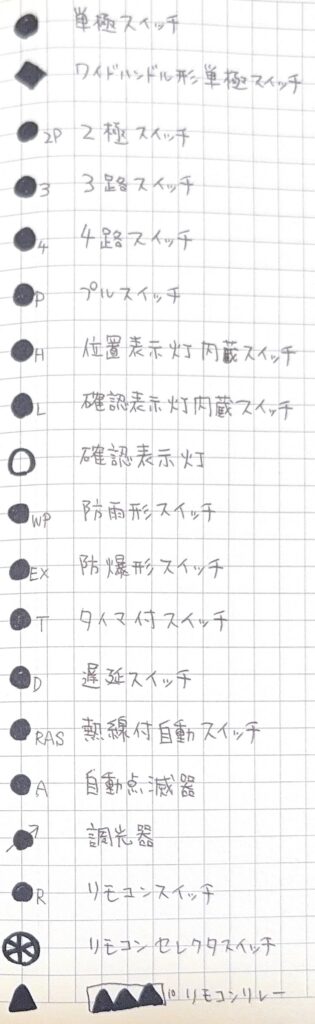 単極スイッチ
ワイドハンドル形単極スイッチ
2P 2極スイッチ
3 3路スイッチ
4 4路スイッチ
P プルスイッチ
H 位置表示灯内蔵スイッチ
L 確認表示灯内蔵スイッチ
確認表示灯
WP 防雨形スイッチ
EX 防爆形スイッチ
T タイマ付スイッチ
D 遅延スイッチ
RAS 熱線付自動スイッチ
A 自動点滅器
調光器
R リモコンスイッチ
リモコンセレクタスイッチ
10 リモコンリレー